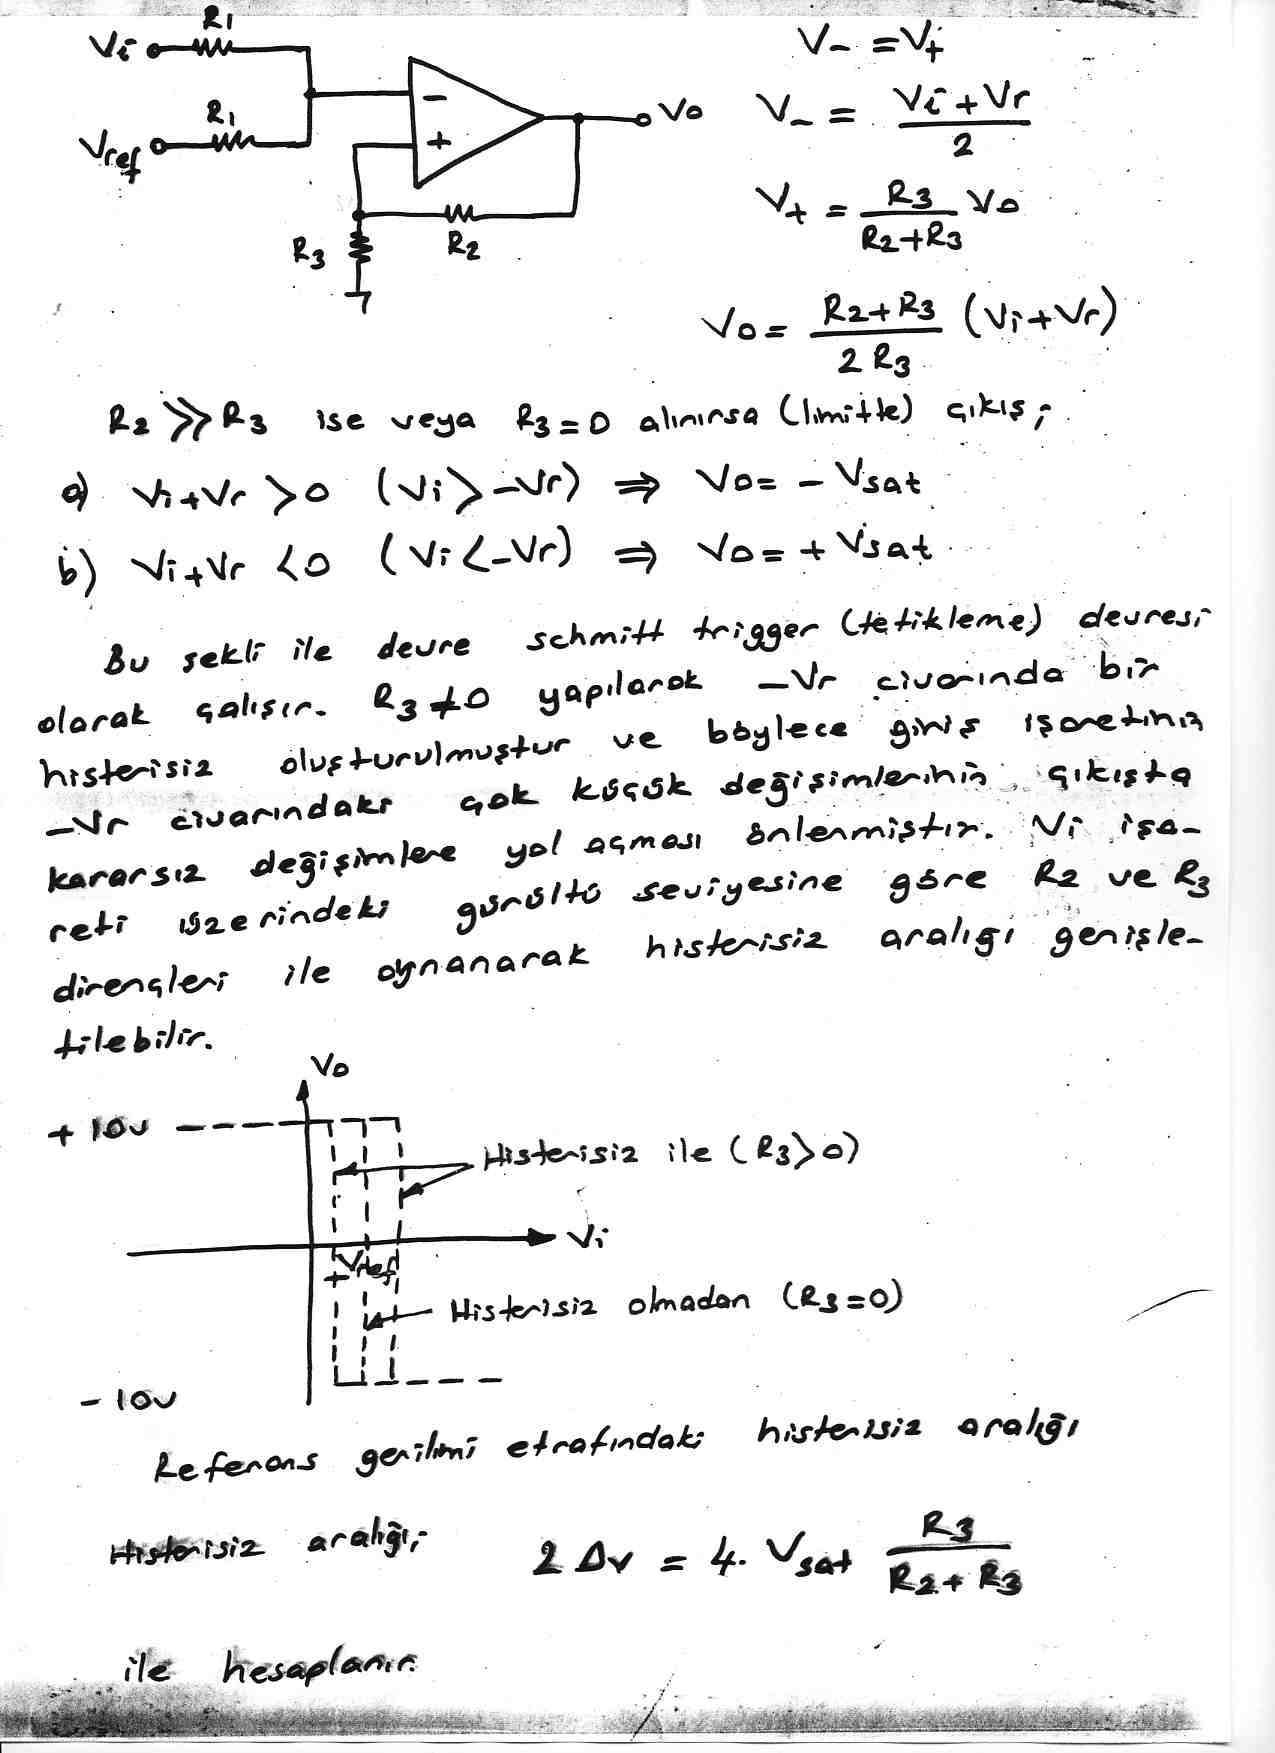 Vi R1
R1
Vref
- +
Vo
R2
R3
V- = V+
V- = (Vi + Vr) / 2
V+ = R3 / (R2+R3) Vo
Vo = (R2+R3) / (2 R3) (Vi+Vr)
R2 ≫ R3 ise veya R3=0 alınırsa (limitte) çıkış;
a) Vi+Vr > 0 (Vi > -Vr) ⇒ Vo = - Vsat
b) Vi+Vr < 0 (Vi < -Vr) ⇒ Vo = + Vsat
Bu şekli ile devre schmitt trigger (tetikleme) devresi
olarak çalışır. R3≠0 yapılarak -Vr civarında bir
histerisiz oluşturulmuştur ve böylece giriş işaretinin
-Vr civarındaki çok küçük değişimlerinin çıkışta
kararsız değişimlere yol açması önlenmiştir. Vi işa-
reti üzerindeki gürültü seviyesine göre R2 ve R3
dirençleri ile oynanarak histerisiz aralığı genişle-
tilebilir.
Vo
+ 10v
Histerisiz ile (R3>0)
Vi
+Vref
Histerisiz olmadan (R3=0)
- 10v
Referans gerilimi etrafındaki histerisiz aralığı
Histerisiz aralığı; 2 Δv = 4. Vsat R3 / (R2+R3)
ile hesaplanır.